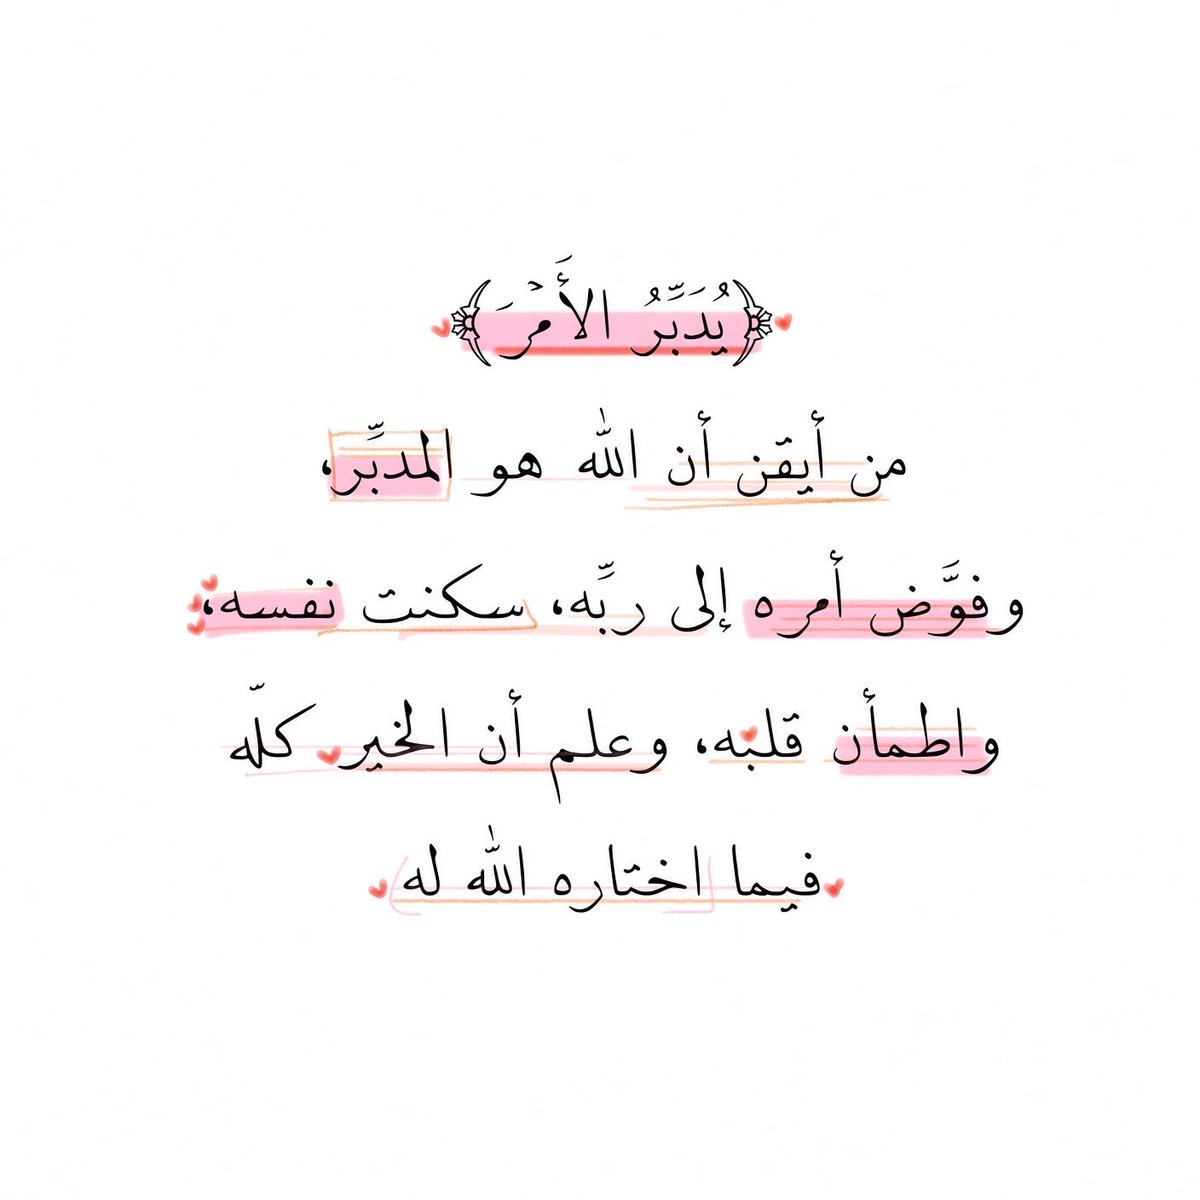 ﴿يُدَبِّرُ الأَمْرَ﴾
من أيقن أن الله هو المدبِّر،
وفوَّض أمره إلى ربِّه، سكنت نفسه،
واطمأن قلبه، وعلم أن الخير كلّه
فيما اختاره الله له